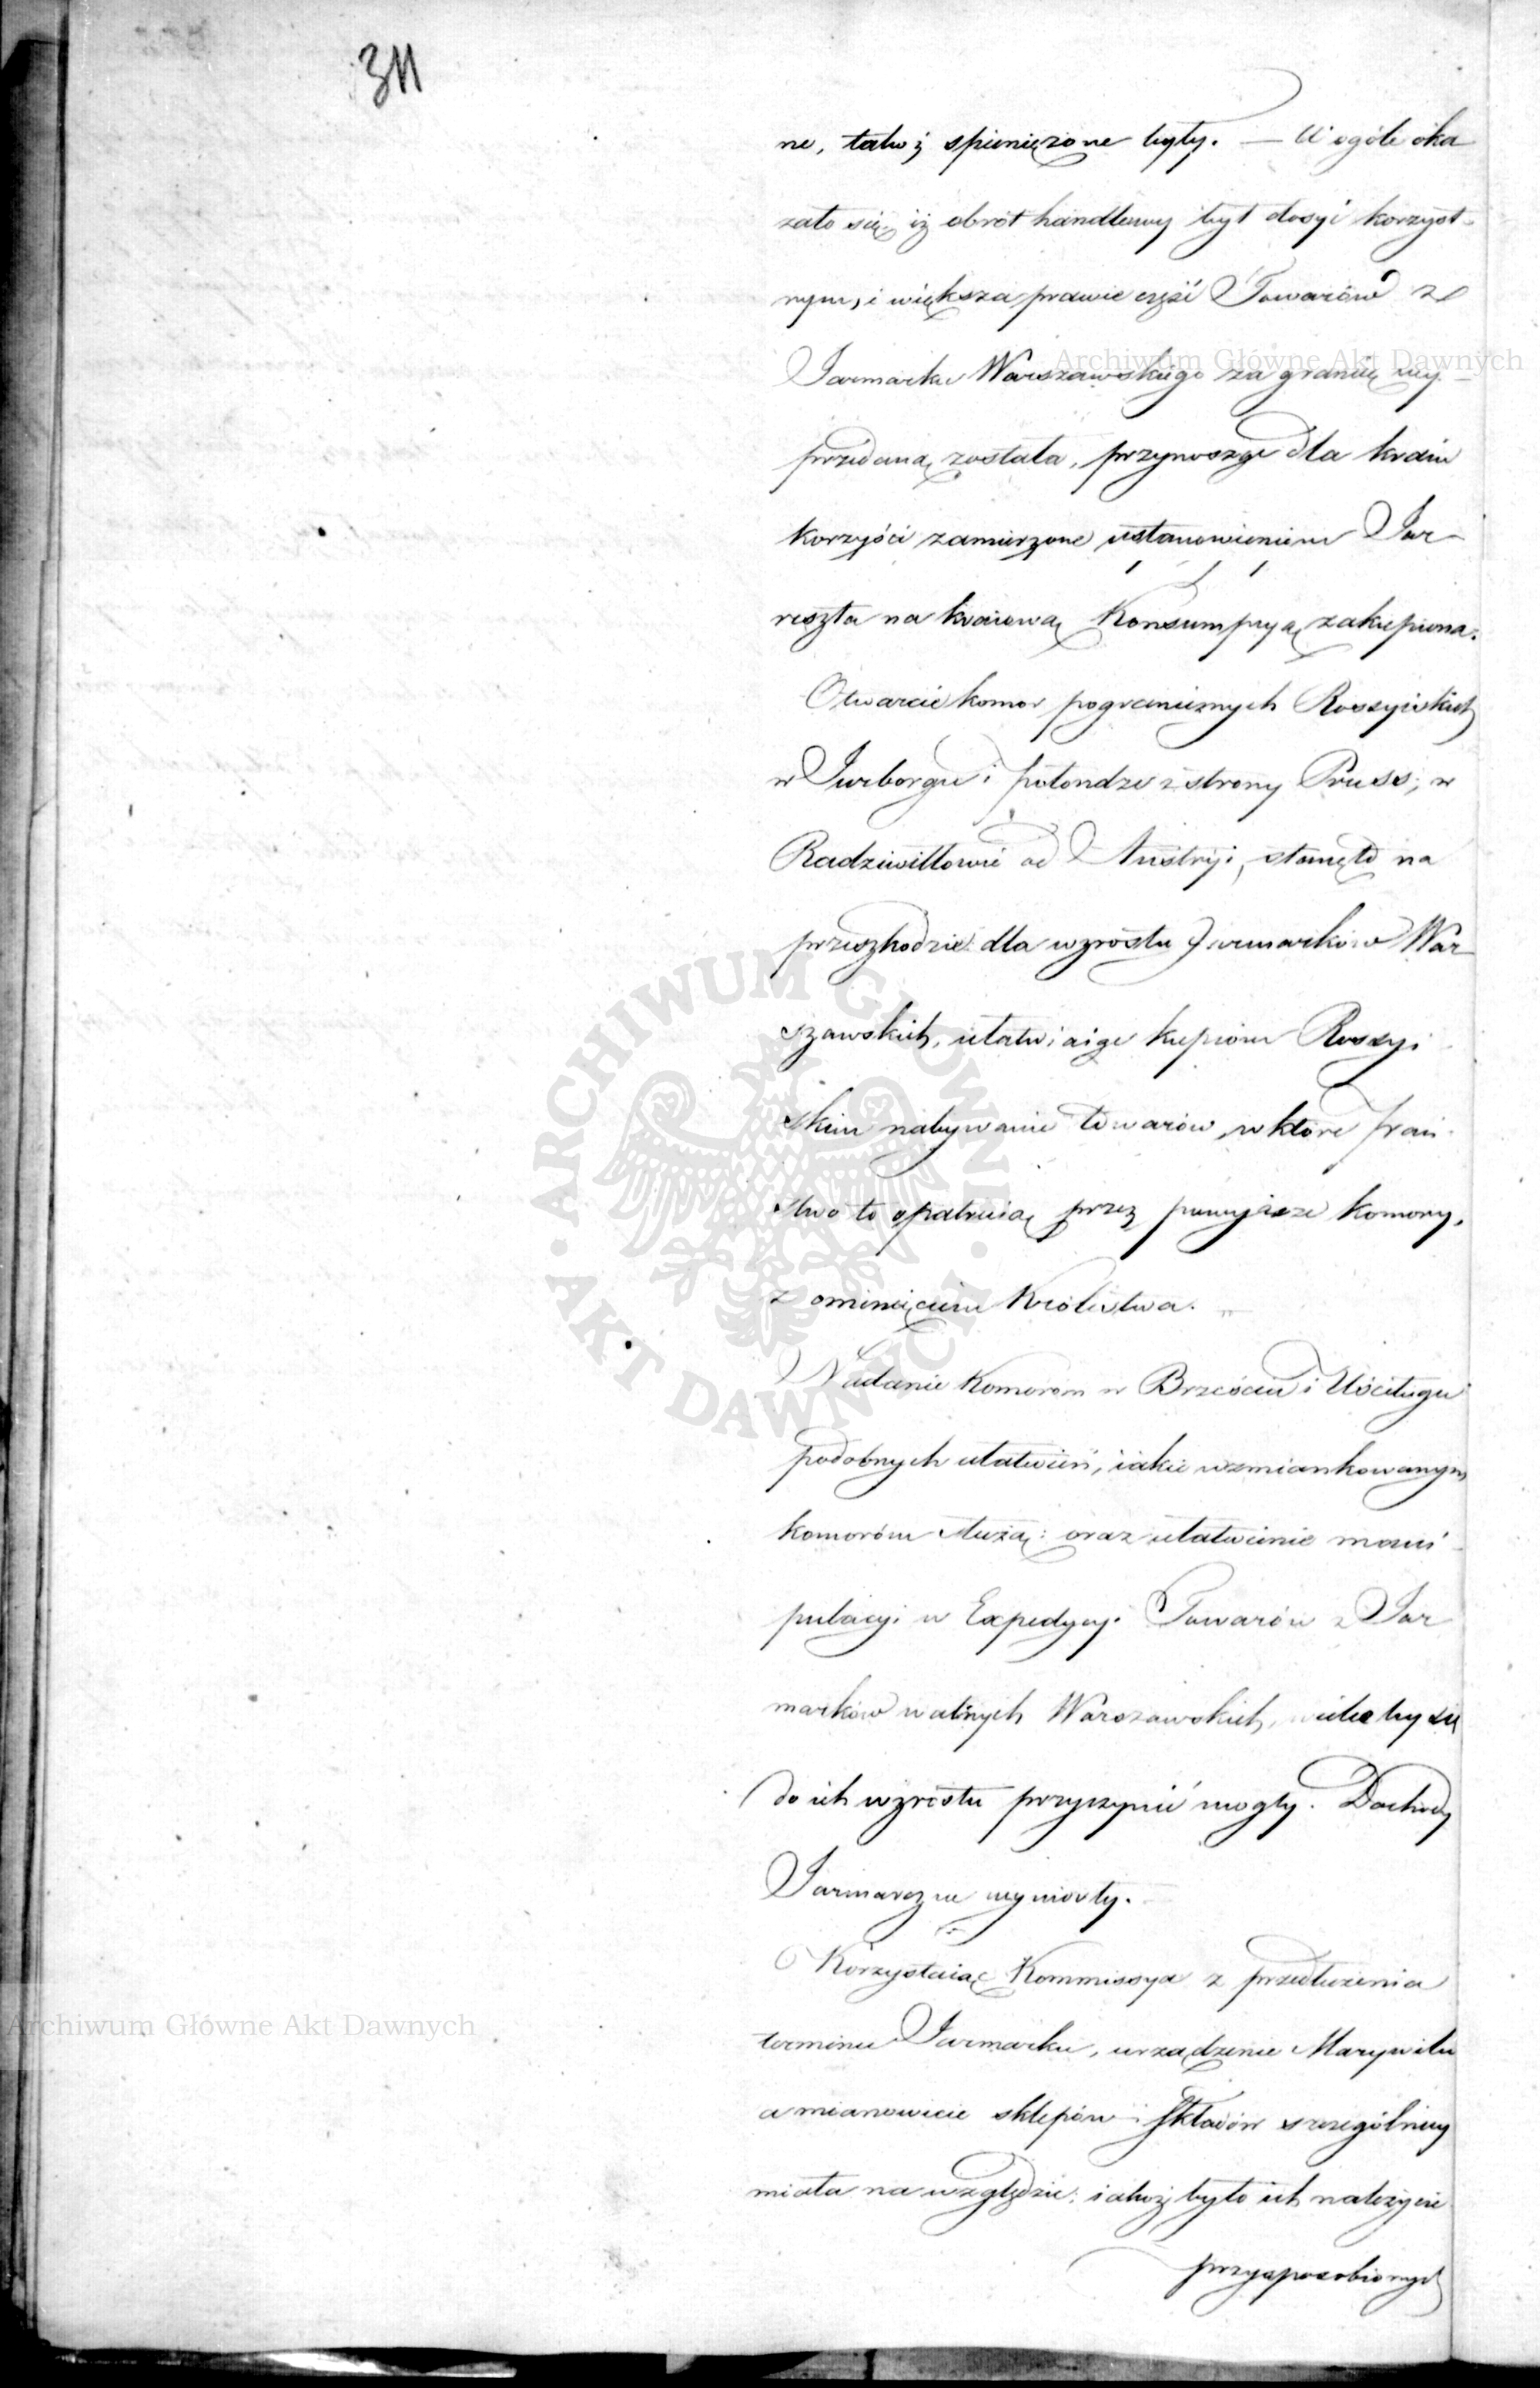 311
ne, takoż spieniężone były. — W ogóle oka
zało się, iż obrót handlowy był dosyć korzyst-
nym, i większa prawie część Towarów z
Jarmarku Warszawskiego za granicę wy-
przedaną została, przynosząc dla kraiu
korzyści zamierzone ustanowieniem Jar-
reszta na kraiową Konsumpcyą zakupiona.
Otwarcie komor pogranicznych Rossyiskich
w Jurborgu i Połondze z strony Pruss; w
Radziwiłłowie od Austryi, stanęło na
przeszkodzie dla wzrostu Jarmarków War
szawskich, ułatwiaiąc kupcom Rossyi
skim nabywanie towarów, w które Pań-
stwo to opatruią przez powyższe komory,
z ominięciem Królestwa.
Nadanie Komorom w Brześciu i Uściługu
podobnych ułatwień, iakie wzmiankowanym
komorom służą: oraz ułatwienie mani-
pulacyi w Expedycyi Towarów z Jar
marków walnych Warszawskich, wiele by się
do ich wzrostu przyczynić mogły. Dochody
Jarmarczne wyniosły.
Korzystaiąc Kommissya z przedłużenia
terminu Jarmarku, urządzenie Marywilu
a mianowicie sklepów i składów szczególniey
miała na względzie; iakoż było ich należycie
przysposobionych
Archiwum Główne Akt Dawnych
Archiwum Główne Akt Dawnych
ARCHIWUM GŁÓWNE · AKT DAWNYCH ·